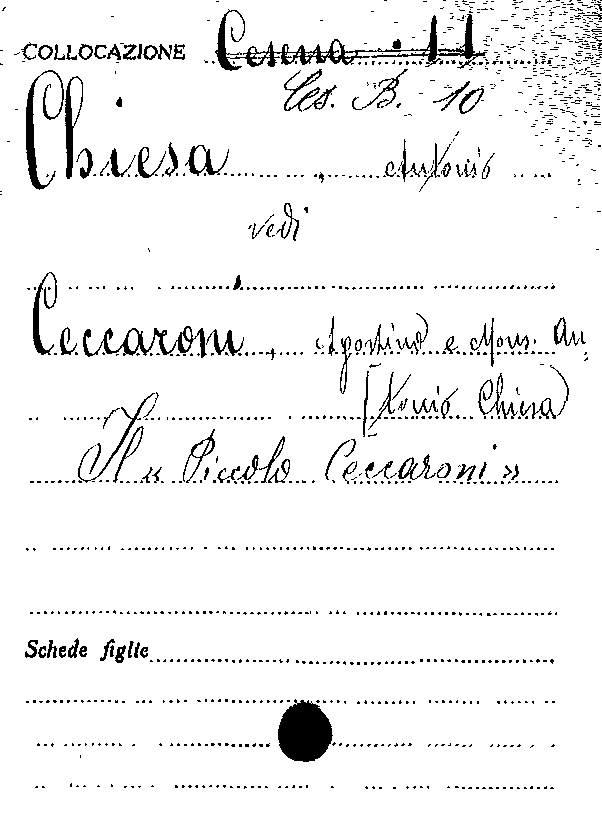 COLLOCAZIONE Cesena · 11
Ces. B. 10
Chiesa, Antonio
vedi
Ceccaroni, Agostino e Mons. An-
[tonio Chiesa)
Il « Piccolo Ceccaroni »
Schede figlie